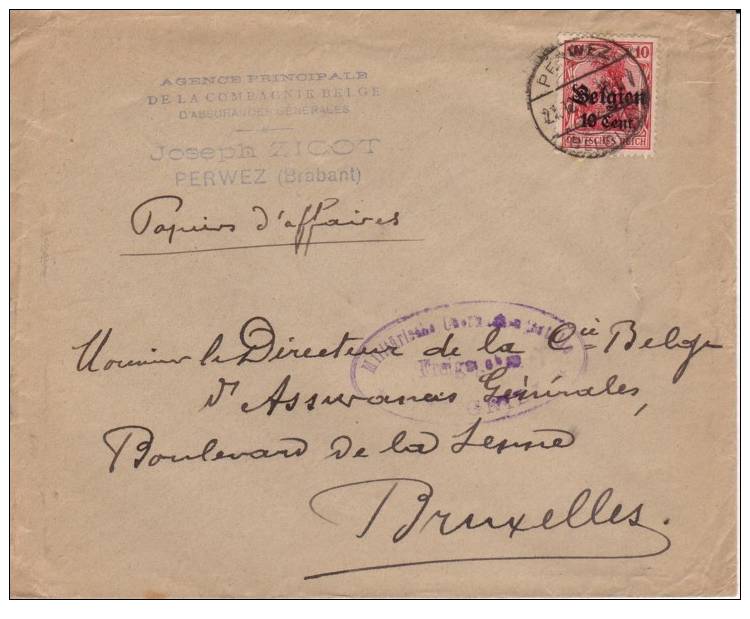 AGENCE PRINCIPALE
DE LA COMPAGNIE BELGE
D'ASSURANCES GÉNÉRALES
Joseph ZICOT
PERWEZ (Brabant)
PERWEZ
10
Belgien
10 Cent.
DEUTSCHES REICH
Papiers d'affaires
Militärische
Monsieur le Directeur de la Cie Belge
d'Assurances Générales,
Boulevard de la Senne
Bruxelles.